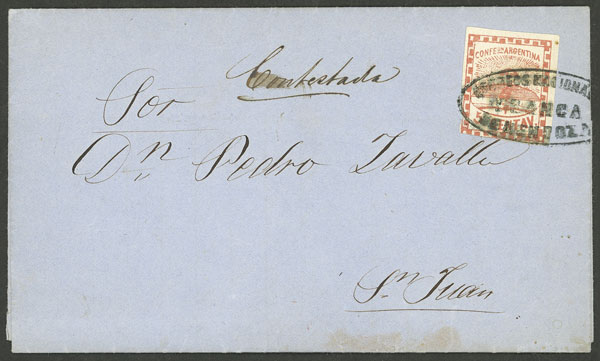 Contestada
Sor
Dn Pedro Zavalla
Sn Juan
CONFEon ARGENTINA
CORREOS NACIONAL
FRANCA
MENDOZA